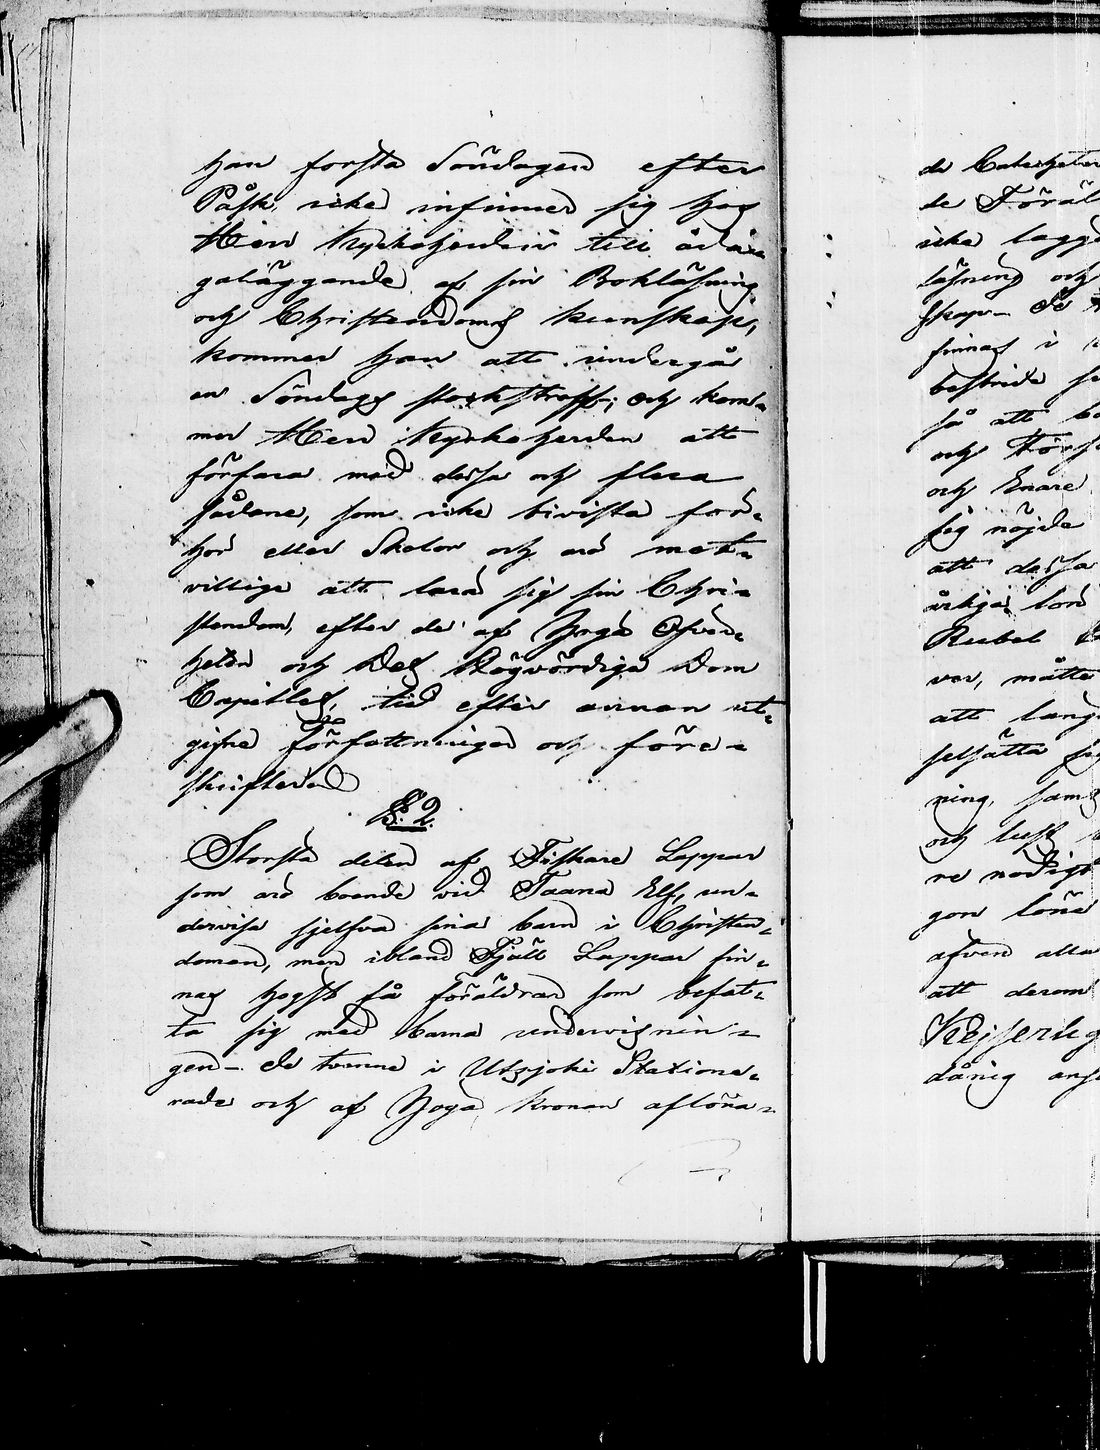 han forsta Söndagen efter
Påsk, icke infinner sig hos
Herr Kyrkoherden till ådaa-
galäggande af sin Bokläsning
och Christendoms kunskap,
kommer han att undergå
en Söndags stockstraff; och kom-
mer Herr Kyrkoherden att
förfara med dessa och flera
sådane, som icke bivista for-
hör eller Skolor och äro mot-
villige att lära sig sin Chri-
stendom, efter de af Höga Öfver-
heten och Des Högvördiga Dom
Capitlet, tid efter annan ut-
gifne Författningar och före-
skrifter
§. 2.
Storsta delen af Fiskare Lappar
som äro boende vid Taana Elf, un-
dervisa sjelfva sina barn i Christen-
domen, men ibland Fjäll Lappar fin-
nas högst få föräldrar som befat-
ta sig med barna undervisnin-
gen - De tvenne i Utsjoki Statione-
rade och af Höga Kronan aflöna-
de Catecheter
de Föräl
icke lagge
läsning och
skap - De
finnas i
bestrida
så att
och Förs
och Enare
sig nöjde
att dessa
årliga lön
Rubel
ver, måtte
att lang
selsätta sig
ning, sam
och lust
re nödigt
gon löna
afven alla
att derom
Kejserlig
dånig